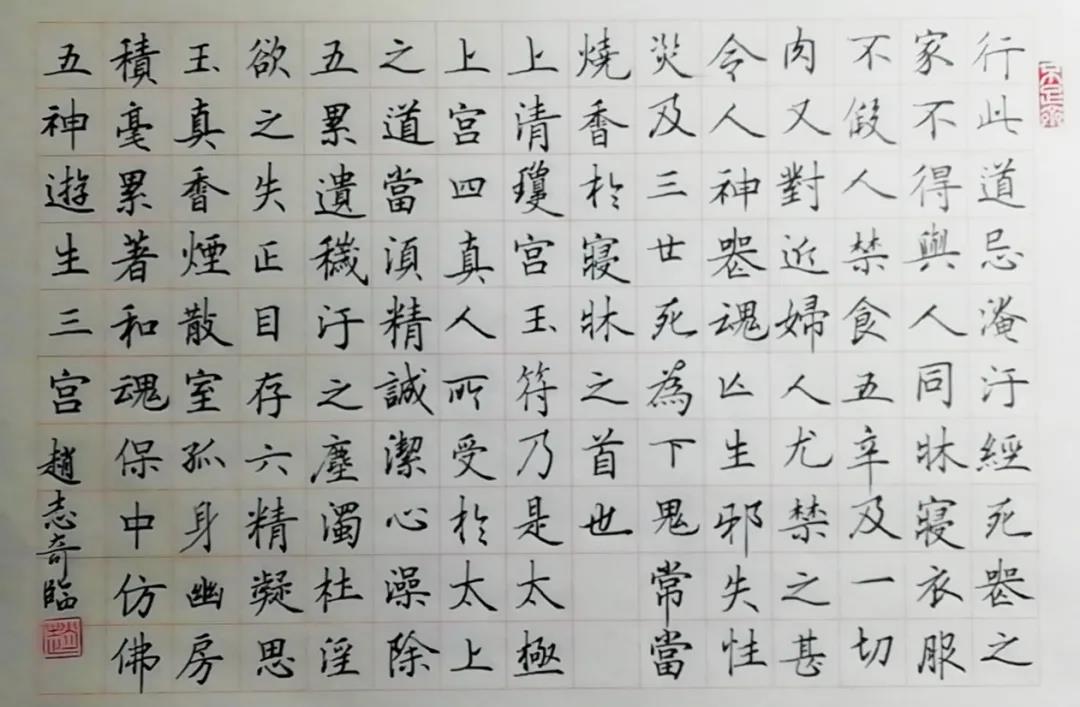 行此道忌淹汙經死喪之
家不得與人同牀寢衣服
不假人禁食五辛及一切
肉又對近婦人尤禁之甚
令人神喪魂亡生邪失性
災及三世死為下鬼常當
燒香於寢牀之首也
上清瓊宮玉符乃是太極
上宮四真人所受於太上
之道當須精誠潔心澡除
五累遺穢汙之塵濁杜淫
欲之失正目存六精凝思
玉真香煙散室孤身幽房
積毫累著和魂保中仿佛
五神遊生三宮 趙志奇臨